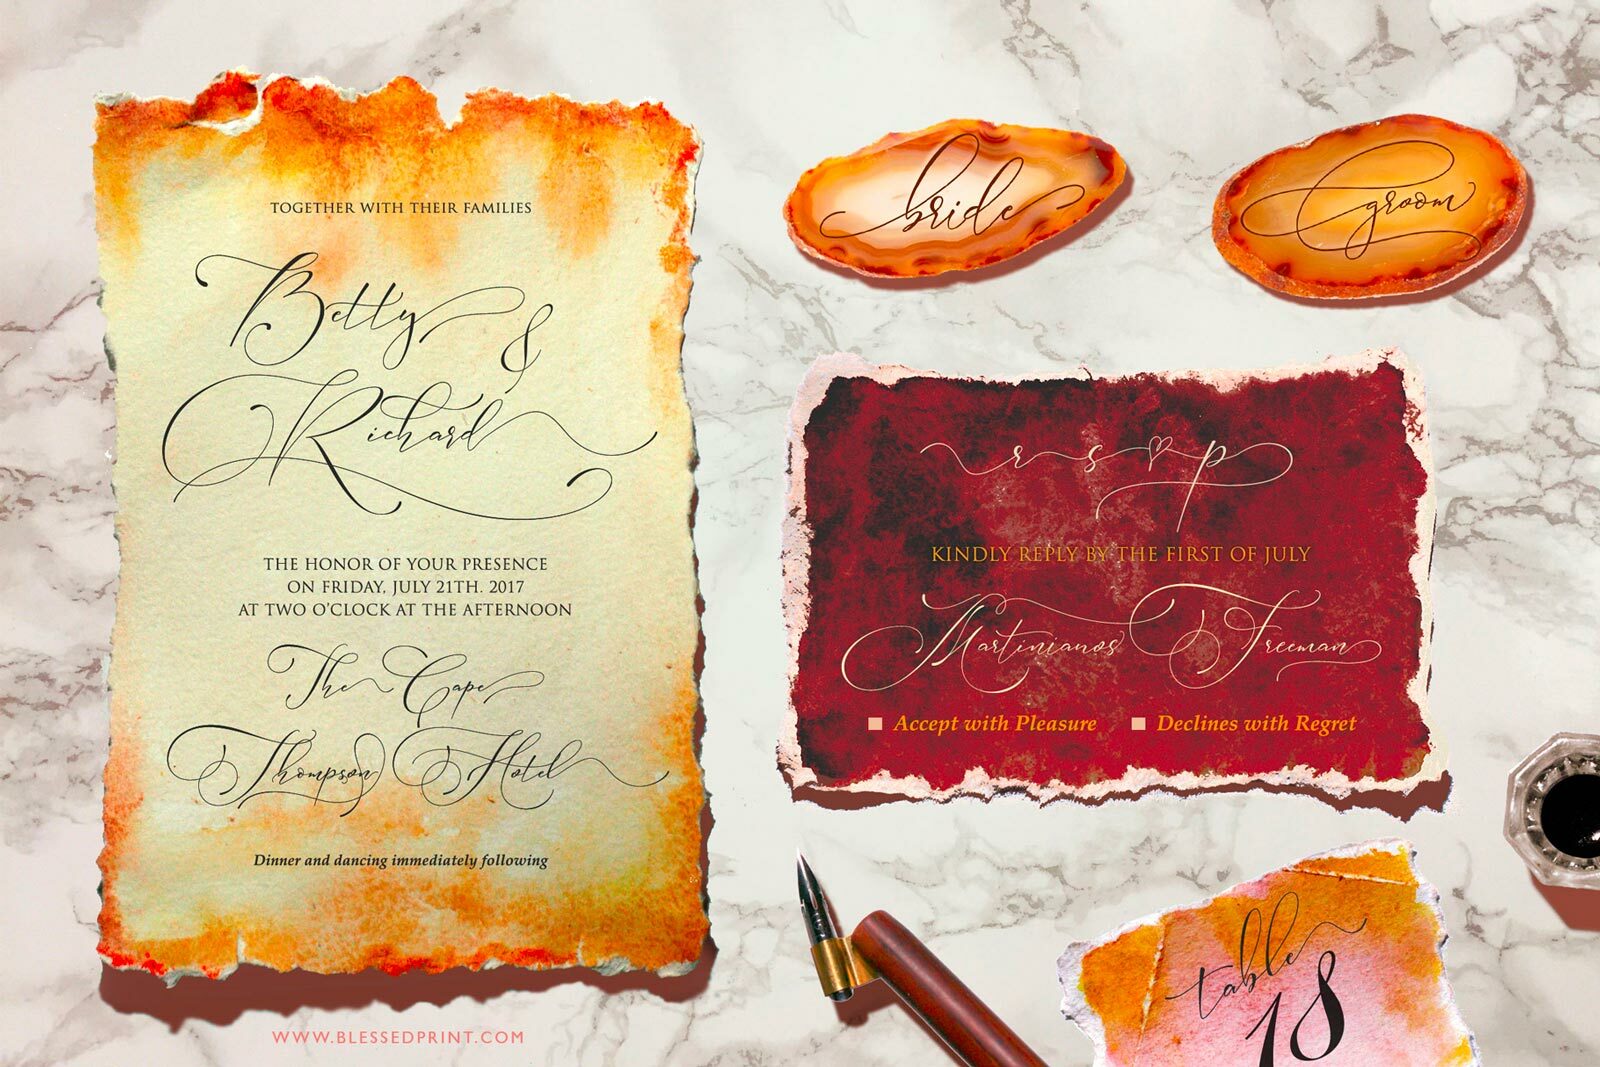 TOGETHER WITH THEIR FAMILIES
Betty &
Richard
THE HONOR OF YOUR PRESENCE
ON FRIDAY, JULY 21TH. 2017
AT TWO O'CLOCK AT THE AFTERNOON
The Cape
Thompson Hotel
Dinner and dancing immediately following
WWW.BLESSEDPRINT.COM
bride
groom
rsvp
KINDLY REPLY BY THE FIRST OF JULY
Martinianos Freeman
Accept with Pleasure
Declines with Regret
table
18